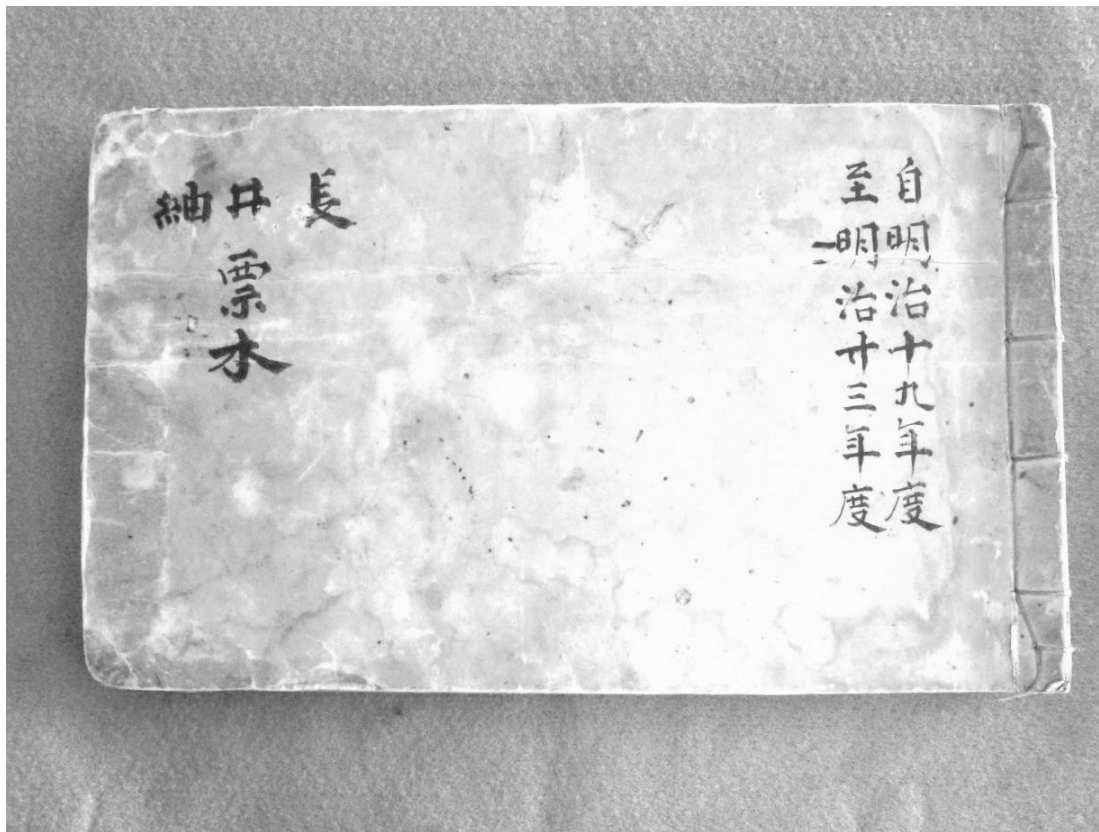 自明治十九年度
至明治廿三年度
長井紬
票本